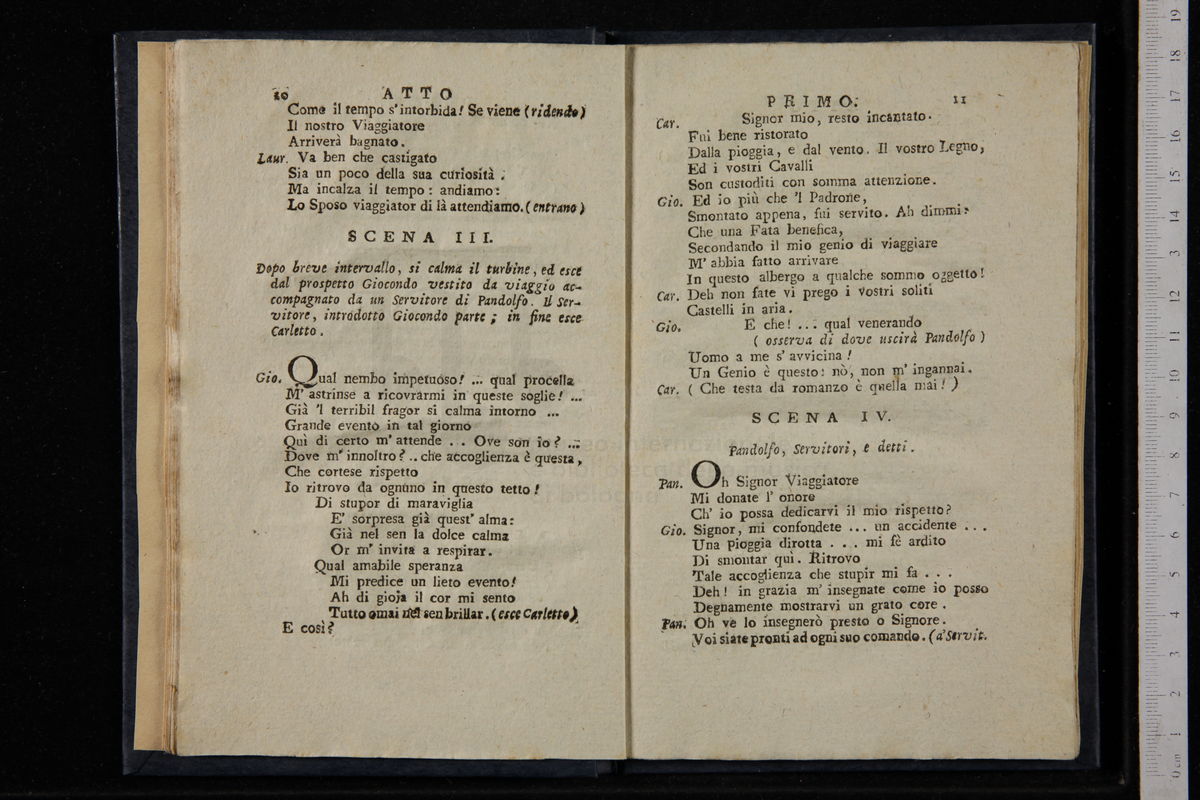 10 ATTO
Come il tempo s'intorbida! Se viene (ridendo)
Il nostro Viaggiatore
Arriverà bagnato.
Laur. Va ben che castigato
Sia un poco della sua curiosità.
Ma incalza il tempo: andiamo:
Lo Sposo viaggiator di là attendiamo. (entrano)
SCENA III.
Dopo breve intervallo, si calma il turbine, ed esce
dal prospetto Giocondo vestito da viaggio ac-
compagnato da un Servitore di Pandolfo. Il Ser-
vitore, introdotto Giocondo parte; in fine esce
Carletto.
Gio. Qual nembo impetuoso! ... qual procella
M' astrinse a ricovrarmi in queste soglie! ...
Già 'l terribil fragor si calma intorno ...
Grande evento in tal giorno
Quì di certo m' attende .. Ove son io? ...
Dove m' innoltro? .. che accoglienza è questa,
Che cortese rispetto
Io ritrovo da ognuno in questo tetto!
Di stupor di maraviglia
E' sorpresa già quest' alma:
Già nel sen la dolce calma
Or m' invita a respirar.
Qual amabile speranza
Mi predice un lieto evento!
Ah di gioja il cor mi sento
Tutto omai nel sen brillar. (esce Carletto)
E così?
PRIMO. 11
Car. Signor mio, resto incantato.
Fui bene ristorato
Dalla pioggia, e dal vento. Il vostro Legno,
Ed i vostri Cavalli
Son custoditi con somma attenzione.
Gio. Ed io più che 'l Padrone,
Smontato appena, fui servito. Ah dimmi?
Che una Fata benefica,
Secondando il mio genio di viaggiare
M' abbia fatto arrivare
In questo albergo a qualche sommo oggetto!
Car. Deh non fate vi prego i vostri soliti
Castelli in aria.
Gio. E che! ... qual venerando
( osserva di dove uscirà Pandolfo )
Uomo a me s' avvicina!
Un Genio è questo: nò, non m' ingannai.
Car. ( Che testa da romanzo è quella mai! )
SCENA IV.
Pandolfo, Servitori, e detti.
Pan. Oh Signor Viaggiatore
Mi donate l' onore
Ch' io possa dedicarvi il mio rispetto?
Gio. Signor, mi confondete ... un accidente ...
Una pioggia dirotta ... mi fè ardito
Di smontar quì. Ritrovo
Tale accoglienza che stupir mi fa ...
Deh! in grazia m' insegnate come io posso
Degnamente mostrarvi un grato core.
Pan. Oh ve lo insegnerò presto o Signore.
Voi siate pronti ad ogni suo comando. (a' Servit.